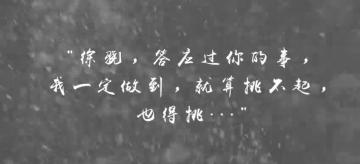 “徐骁，答应过你的事，
我一定做到，就算挑不起，
也得挑···”